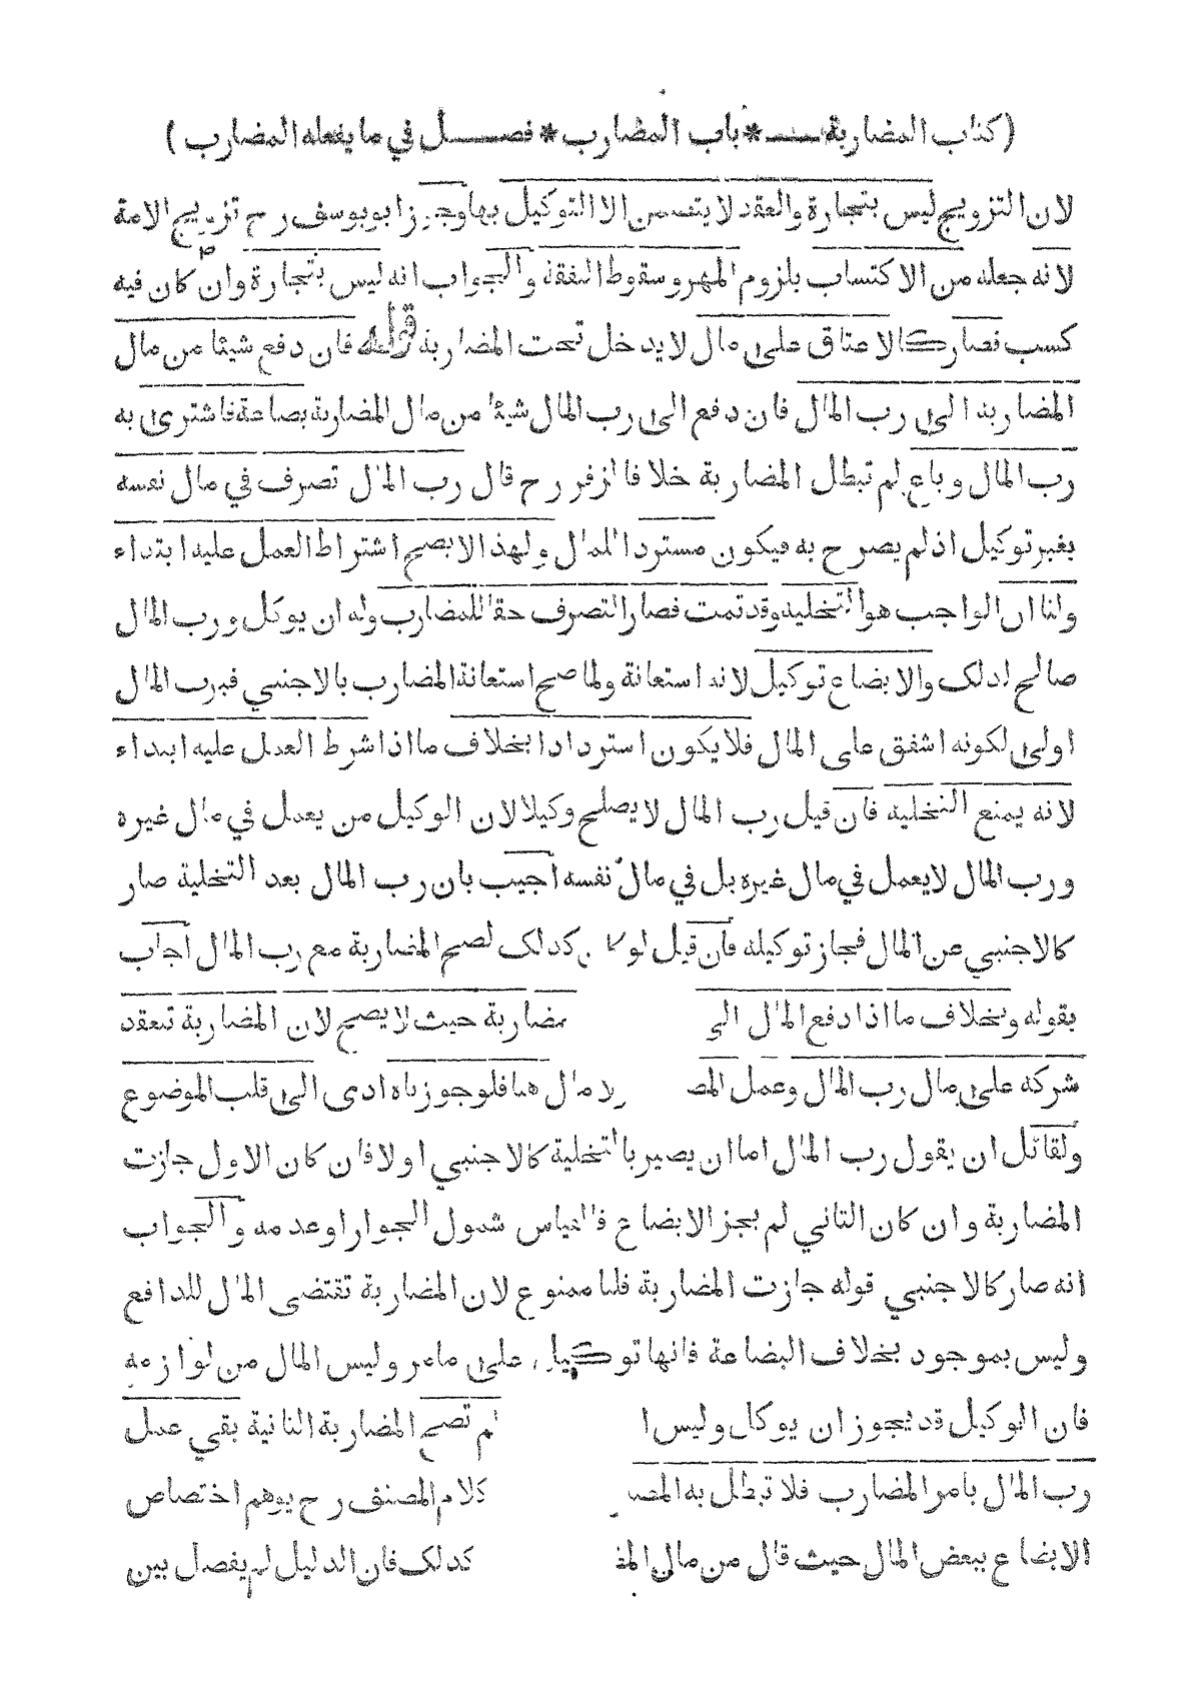 (كتاب المضاربة * باب المضارب * فصل في ما يفعله المضارب)
لان التزويج ليس بتجارة والعقد لا يتضمن الا التوكيل بها وجوز ابو يوسف رح تزويج الامة
لانه جعله من الاكتساب بلزوم المهر وسقوط النفقة والجواب انه ليس بتجارة وان كان فيه
كسب فصار كالاعتاق على مال لا يدخل تحت المضاربة قوله فان دفع شيئا من مال
المضاربة الى رب المال فان دفع الى رب المال شيئا من مال المضاربة بضاعة فاشترى به
رب المال وباع لم تبطل المضاربة خلافا لزفر رح قال رب المال تصرف في مال نفسه
بغير توكيل اذ لم يصرح به فيكون مستردا للمال ولهذا لا يصح اشتراط العمل عليه ابتداء
ولنا ان الواجب هو التخلية وقد تمت فصار التصرف حقا للمضارب وله ان يوكل ورب المال
صالح لذلك والابضاع توكيل لانه استعانة ولما صح استعانة المضارب بالاجنبي فبرب المال
اولى لكونه اشفق على المال فلا يكون استردادا بخلاف ما اذا شرط العمل عليه ابتداء
لانه يمنع التخلية فان قيل رب المال لا يصلح وكيلا لان الوكيل من يعمل في مال غيره
ورب المال لا يعمل في مال غيره بل في مال نفسه اجيب بان رب المال بعد التخلية صار
كالاجنبي عن المال فجاز توكيله فان قيل لو كان كذلك لصح المضاربة مع رب المال اجاب
بقوله وبخلاف ما اذا دفع المال الى مضاربة حيث لا يصح لان المضاربة تنعقد
شركة على مال رب المال وعمل المض ولا مال هنا فلو جوزناه ادى الى قلب الموضوع
ولقائل ان يقول رب المال اما ان يصير بالتخلية كالاجنبي او لا فان كان الاول جازت
المضاربة وان كان الثاني لم يجز الابضاع فالقياس شمول الجواز او عدمه والجواب
انه صار كالاجنبي قوله جازت المضاربة قلنا ممنوع لان المضاربة تقتضى المال للدافع
وليس بموجود بخلاف البضاعة فانها توكيل على مامر وليس المال من لوازمه
فان الوكيل قد يجوز ان يوكل وليس ا لم تصح المضاربة الثانية بقي عمل
رب المال بامر المضارب فلا تبطل به المض كلام المصنف رح يوهم اختصاص
الابضاع ببعض المال حيث قال من مال المض كذلك فان الدليل لم يفصل بين